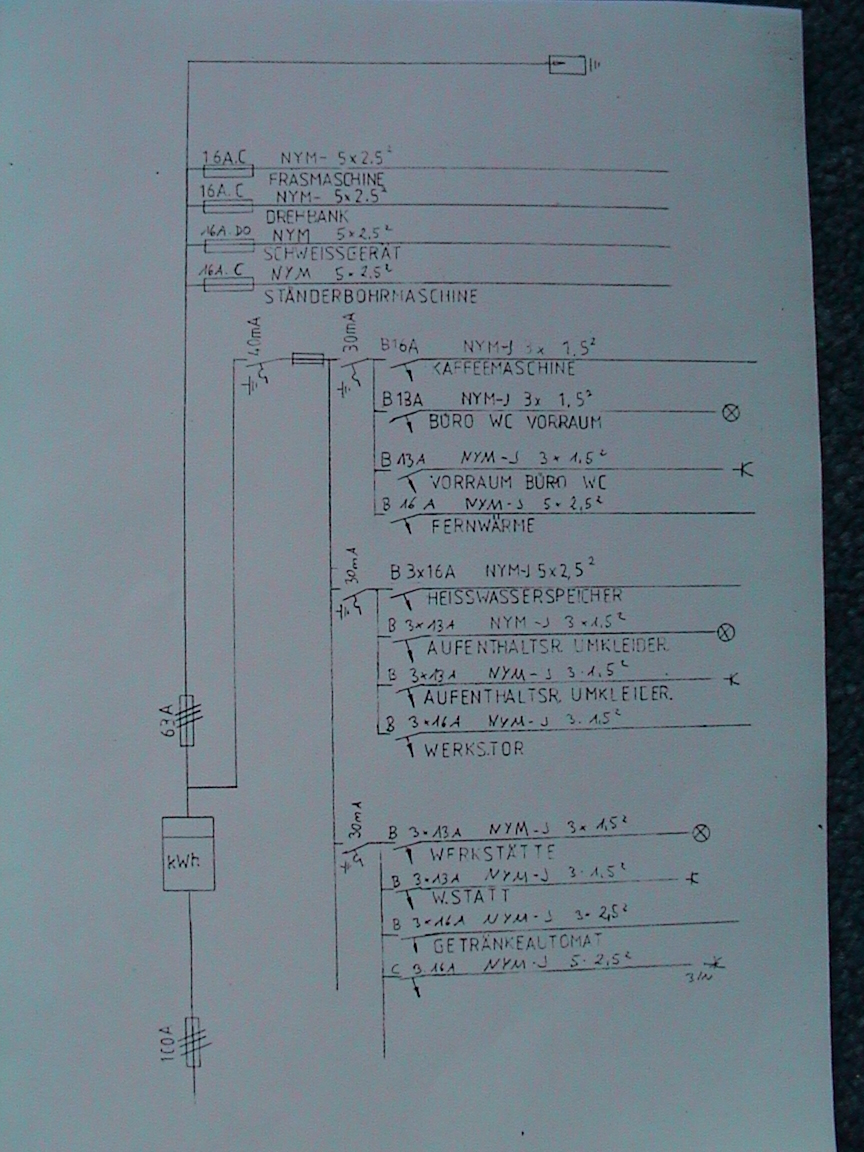 16A.C NYM- 5x2.5²
FRASMASCHINE
16A.C NYM- 5x2.5²
DREHBANK
16A.DO NYM 5x2,5²
SCHWEISSGERÄT
16A.C NYM 5·2,5²
STÄNDERBOHRMASCHINE
40mA
30mA
B16A NYM-J 3x 1,5²
KAFFEEMASCHINE
B 13A NYM-J 3x 1,5²
BÜRO WC VORRAUM
B 13A NYM-J 3x1,5²
VORRAUM BÜRO WC
B 16A NYM-J 5·2,5²
FERNWÄRME
30mA
B 3x16A NYM-J 5x2,5²
HEISSWASSERSPEICHER
B 3x13A NYM-J 3x1,5²
AUFENTHALTSR. UMKLEIDER.
B 3x13A NYM-J 3·1,5²
AUFENTHALTSR. UMKLEIDER.
63A
B 3x16A NYM-J 3·1,5²
WERKS.TOR
30mA
B 3x13A NYM-J 3x1,5²
WERKSTÄTTE
kWh
B 3x13A NYM-J 3·1,5²
W.STATT
B 3x16A NYM-J 3·2,5²
GETRÄNKEAUTOMAT
C 3·16A NYM-J 5·2,5²
3/N
100A